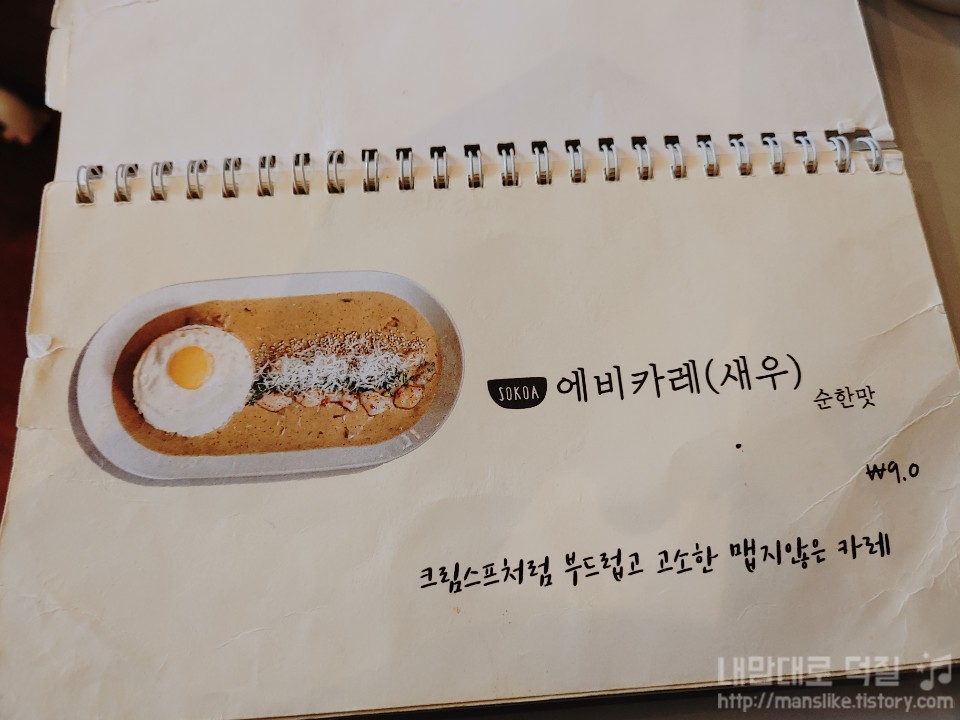 SOKOA 에비카레(새우) 순한맛
₩9.0
크림스프처럼 부드럽고 고소한 맵지않은 카레
내맘대로 덕질
http://manslike.tistory.com